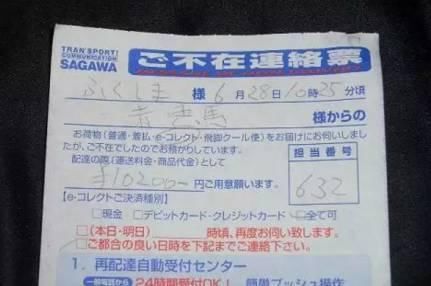 TRANSPORT!
COMMUNICATION
SAGAWA
ご不在連絡票
ふくしま 様 6月28日10時25分頃
赤兎馬 様からの
お荷物(普通・着払・e-コレクト・飛脚クール便)をお届けにお伺いしまし
たが、ご不在でしたのでお預かりしています。
配達の際(運送料金・商品代金)として
¥10200- 円ご用意願います。
担当番号
632
【e-コレクトご決済種別】
□現金 □デビットカード・クレジットカード □全て可
□(本日・明日) 時頃、再度お伺い致します。
□ご都合の良い日時を下記までご連絡下さい。
1. 再配達自動受付センター
一般電話から 24時間受付OK! 簡単プッシュ操作